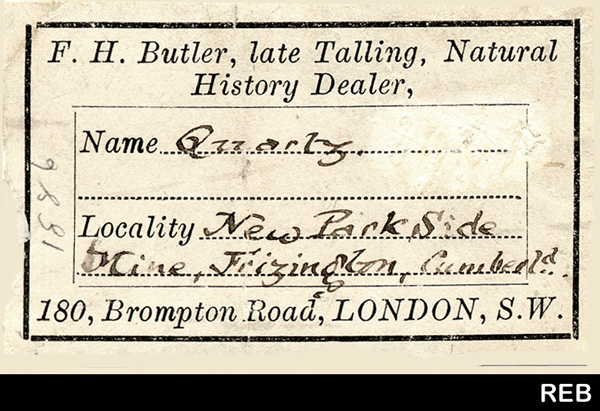 F. H. Butler, late Talling, Natural
History Dealer,
Name Quartz.
Locality New Park Side
Mine, Frizington, Cumberld.
180, Brompton Road, LONDON, S.W.
REB